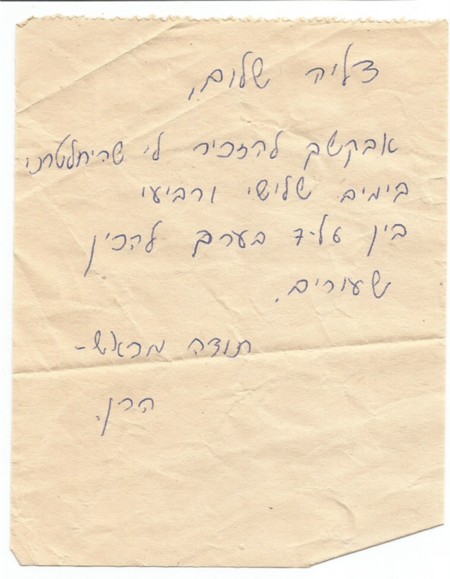 דליה שלום,
אבקשך להזכיר לי שהיחלטתי
בימים שלישי ורביעי
בין 6 ל-7 בערב להכין
שעורים.
תודה מראש-
הרן.